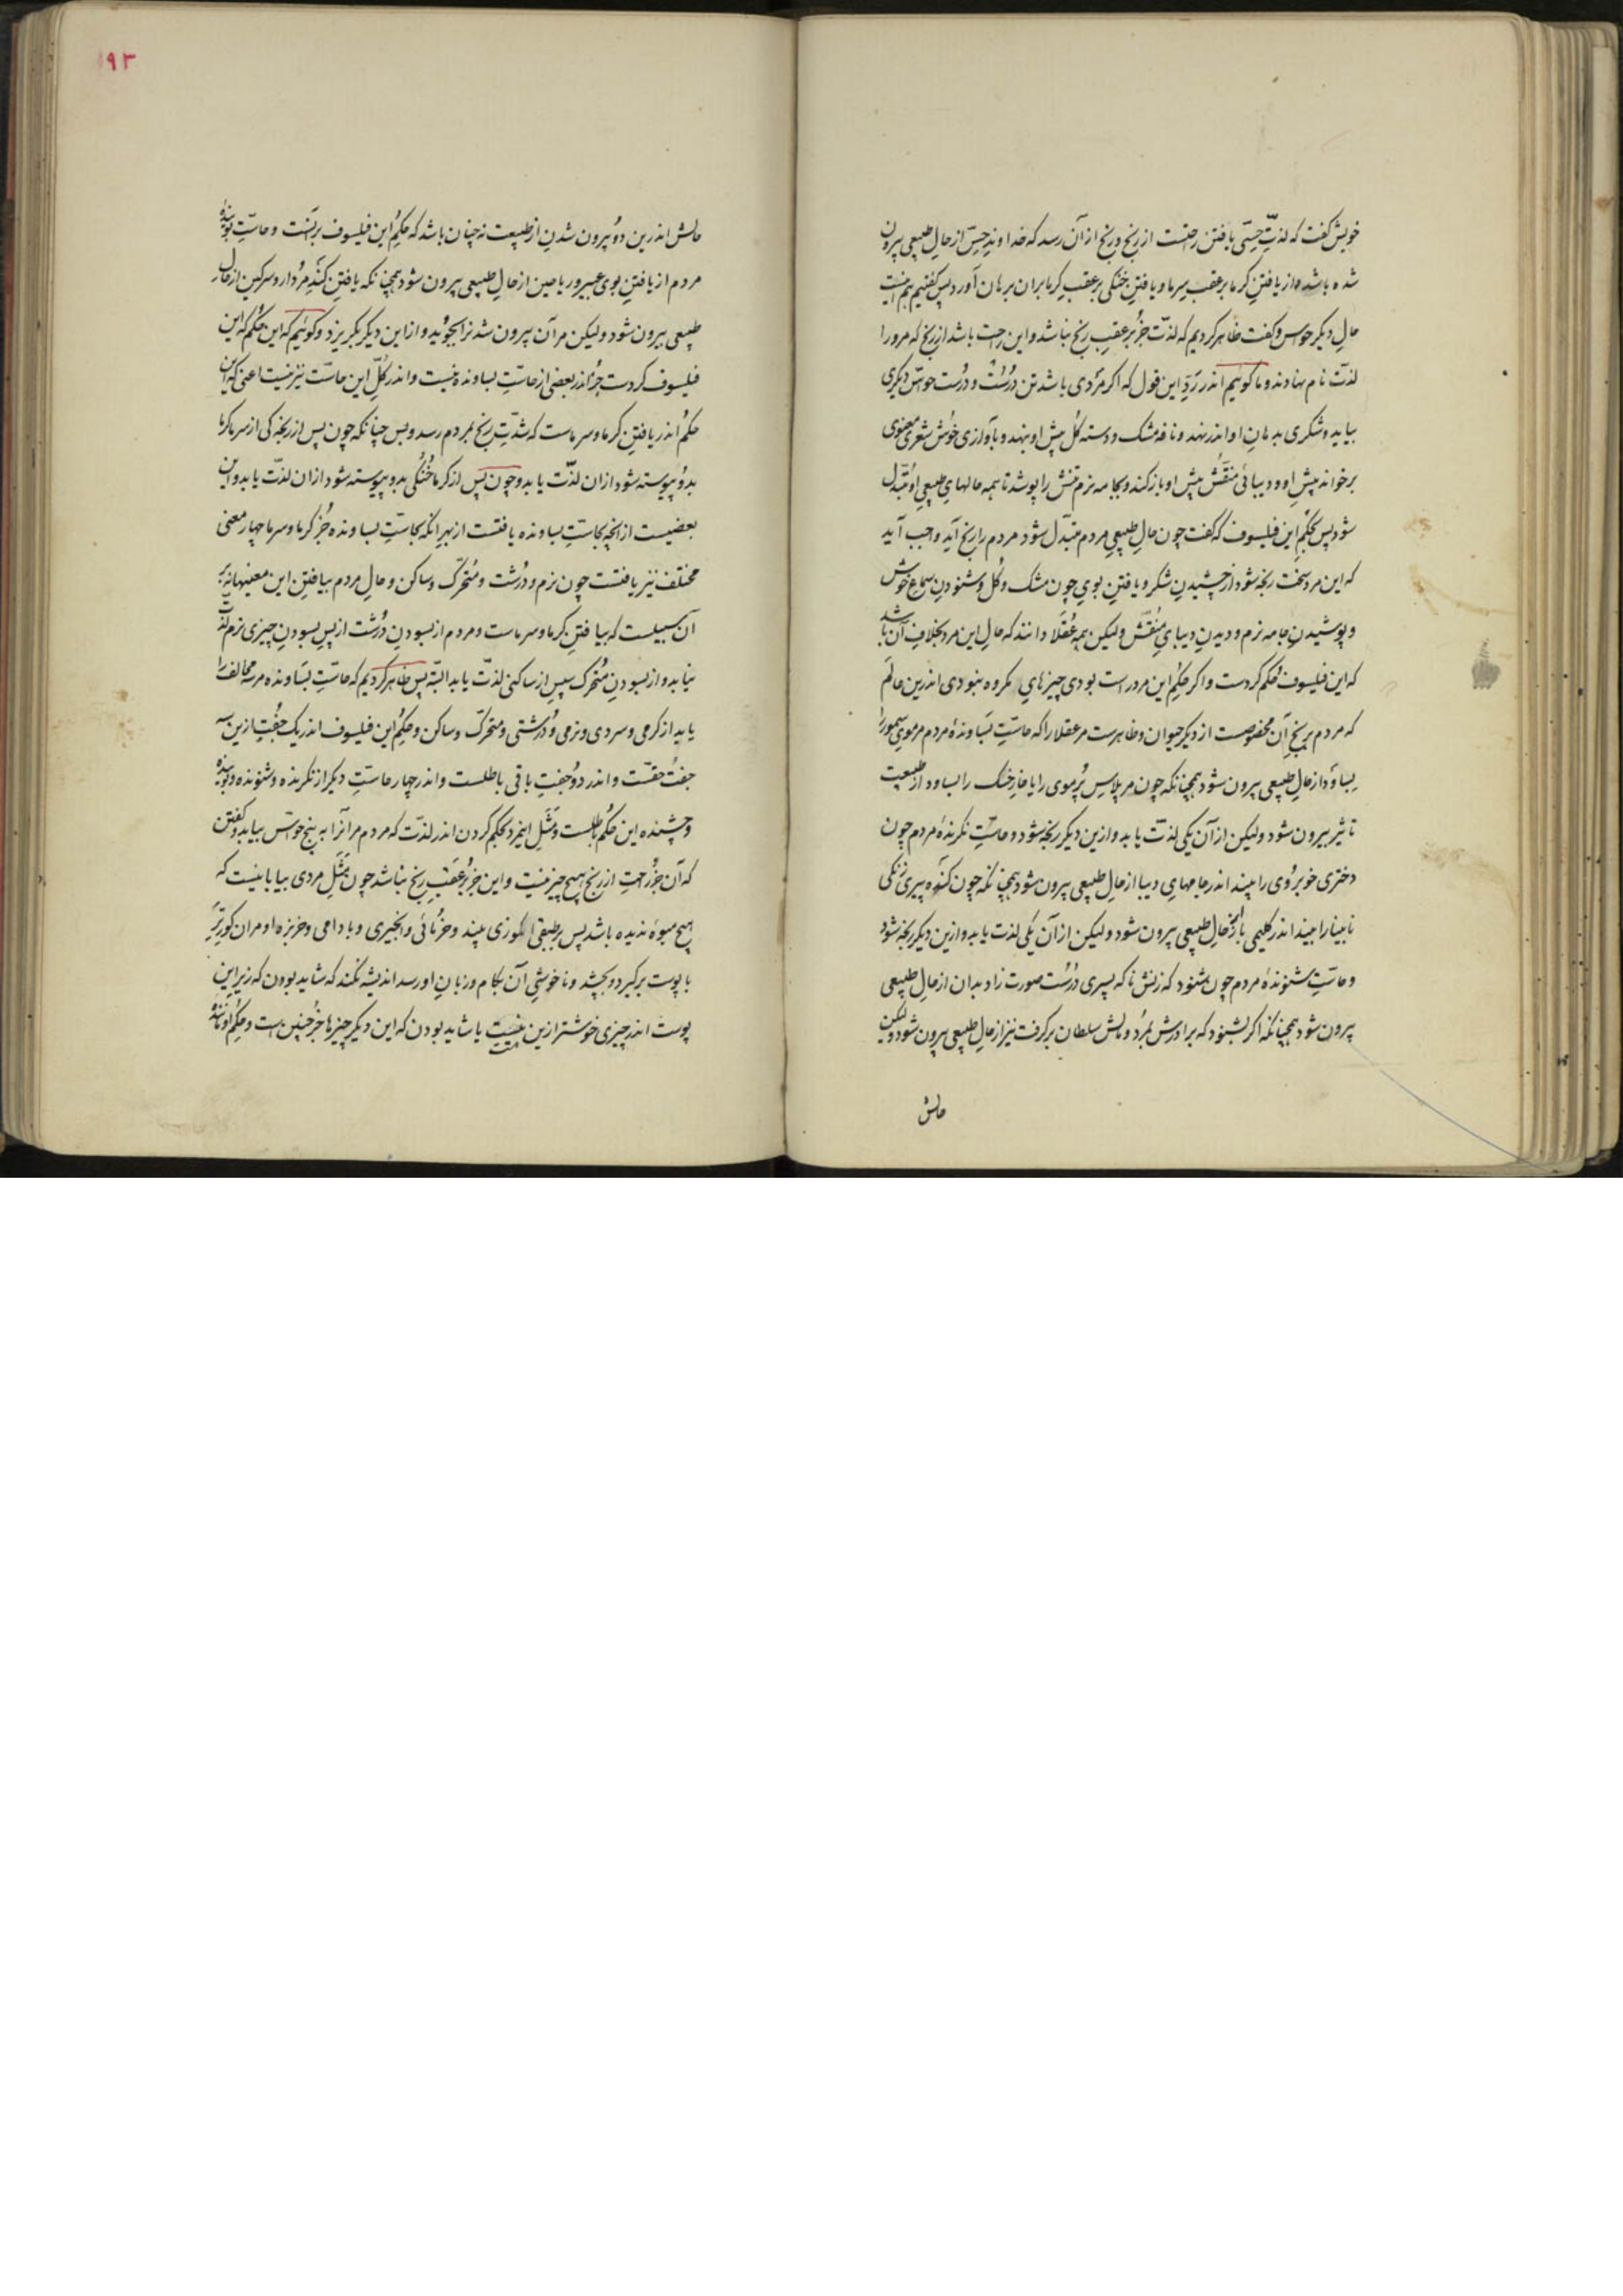 خویش گفت که لذتِ حسّی یافتن راحتست از رنج و رنج از آن رسد که خداوندِ حسّ از حالِ طبیعی بیرون
شده باشد از یافتنِ گرما بر عقبِ سرما و یافتنِ خنکی بر عقبِ گرما بر آن برهان آورد پس گفتیم هم اینست
حالِ دیگر حواس و گفت ظاهر کردیم که لذّت جز بر عقبِ رنج نباشد و این راحت باشد از رنج که مرورا
لذّت نام نهادند و ما گوئیم اندر ردِّ این قول که اگر مردی باشد تن دُرُست و دُرُست حواس دیگری
بیاید و شکری بدهانِ او اندر نهد و نافه مشک و دسته گل پیش او بنهد و بآوازی خوش شعری معنوی
برخواند پیش او و دیبائی منقّش پیش او باز کند و بجامه نرم تنش را بپوشد تا همه حالهای طبیعیِ او مُتبدّل
شود پس بحکمِ این فیلسوف که گفت چون حالِ طبیعیِ مردم متبدّل شود مردم را رنج آید واجب آید
که این مرد سخت رنجه شود از چشیدنِ شکر و یافتنِ بویِ چون مشک و گُل و شنودنِ سماعِ خوش
و پوشیدنِ جامه نرم و دیدنِ دیبایِ مُنقّش ولیکن همه عُقَلا دانند که حالِ این مرد بخلافِ آن باشد
که این فیلسوف حُکم کردست و اگر حکمِ این مرد راست بودی چیزهایِ مکروه نبودی اندرین عالَم
که مردم برنجِ آن مخصوصست از دیگر حیوان و ظاهرست مر عقلا را که حاسّتِ بَساوندهٔ مردم مر مویِ سمور را
بِساوَد از حالِ طبیعی بیرون شود همچنانکه چون مر پلاسِ پُر موی را یا خارِ خسک را بساود از طبیعت
تاثیر بیرون شود ولیکن از آن یکی لذّت یابد و ازین دیگر رنجه شود و حاسّتِ نگرندهٔ مردم چون
دختری خوبرُوی را بیند اندر جامهایِ دیبا از حالِ طبیعی بیرون شود همچنانکه چون گنده پیری زنگی
نابینا را بیند اندر گلیمی باز از حالِ طبیعی بیرون شود ولیکن از آن یکی لذّت یابد و ازین دیگر رنجه شود
و حاسّتِ شنوندهٔ مردم چون بشنود که زنش ناگه پسری دُرُست صورت زاد بدان از حالِ طبیعی
بیرون شود همچنانکه اگر بشنود که برادرش بمُرد و مالش سلطان برگرفت نیز از حالِ طبیعی بیرون شود ولیکن
حالش
۹۳
حالش اندرین دو بیرون شدن از طبیعت نه چنان باشد که حکمِ این فیلسوف بر آنست و حاسّتِ بوینده
مردم از یافتنِ بوی عبیر و ریاحین از حالِ طبیعی بیرون شود همچنانکه یافتنِ گندِ مُردار و سرگین از حال
طبیعی بیرون شود ولیکن مر آن بیرون شدن را بجوید و از این دیگر بگریزد و گوئیم که این حُکم که این
فیلسوف کردست جز اندر بعضی از حاسّتِ بساونده نیست و اندر کُلّ این حاسّت نیز نیست اعنی که این
حکم اندر یافتنِ گرما و سرماست که شدّتِ رنج بمردم رسد و بس چنانکه چون پس از رنجگی از سرما گرما
بدو پیوسته شود ازان لذّت یابد و چون پس از گرما خُنُکی بدو پیوسته شود ازان لذّت یابد و این
بعضیست از آنچه بحاسّتِ بساونده یافتست از بهر آنکه بحاسّتِ بساونده جُز گرما و سرما چهار معنی
مختلف نیز یافتست چون نرم و دُرُشت و مُتحرّک و ساکن و حالِ مردم بیافتنِ این معنیها نه بر
آن سبیلست که بیافتنِ گرما و سرماست و مردم از بسودنِ دُرُشت از پسِ بسودنِ چیزی نرم لذّت
نیابد و از بسودنِ مُتحرک سپس از ساکنی لذّت یابد البته پس ظاهر کردیم که حاسّتِ بَساونده مر سه مخالف را
یابد از گرمی و سردی و نرمی و دُرُشتی و متحرّک و ساکن و حکمِ این فیلسوف اندر یک جُفتِ ازین سه
جفت حقست و اندر دو جُفتِ باقی باطلست و اندر چهار حاسّتِ دیگر از نگرنده و شنونده و بوینده
و چشنده این حکم باطلست و مَثَلِ این مرد بحکم کردن اندر لذّت که مردم مر آنرا به پنج حواسّ بیابد و گفتن
که آن جز راحتِ از رنج هیچ چیز نیست و این جُز بر عَقَبِ رنج نباشد چون مَثَلِ مردی بیابانیست که
هیچ میوهٔ ندیده باشد پس بر طبقی گوزی بیند و خُرمائی و انجیری و بادامی و خربزه او مر آن گوزِ تر
با پوست برگیرد و بچشد و ناخوشیِ آن بکام و زبانِ او رسد اندیشه نکند که شاید بودن که زیر این
پوست اندر چیزی خوشتر ازین هست یا شاید بودن که این دیگر چیزها جُز چنین است و حکمِ او